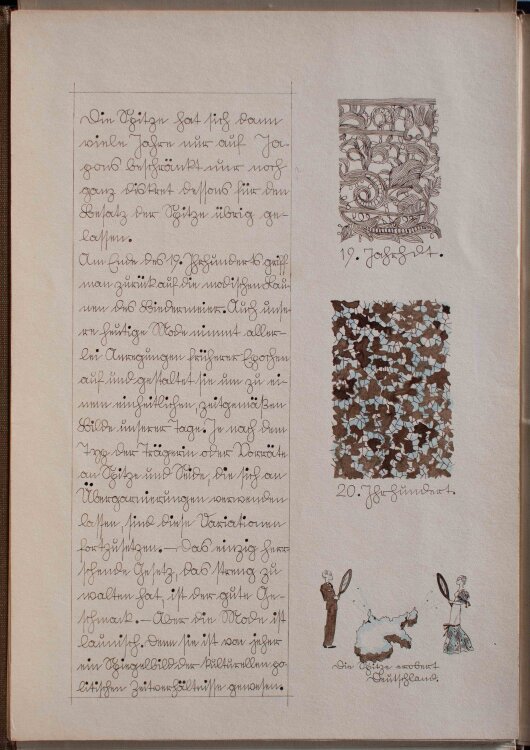 Die Spitze hat sich dann
viele Jahre nur auf Ja-
pons beschränkt nur noch
ganz diskret dessous für den
Besatz der Spitze übrig ge-
lassen.
Am Ende des 19. Jhrhunderts griff
man zurück auf die modischen Lau-
nen des Biedermeier. Auch unse-
re heutige Mode nimmt aller-
lei Anregungen früherer Epochen
auf und gestaltet sie um zu ei-
nem einheitlichen, zeitgemäßen
Bilde unserer Tage. Je nach dem
Typ der Trägerin oder Vorräte
an Spitze und Seide, die sich an
Übergarnierungen verwenden
lassen, sind diese Variationen
fortzusetzen. — Das einzig herr-
schende Gesetz, das streng zu
walten hat, ist der gute Ge-
schmack. — Aber die Mode ist
launisch. Denn sie ist von jeher
ein Spiegelbild der kulturellen po-
litischen Zeitverhältnisse gewesen.
19. Jahrhdt.
20. Jhrhundert.
Die Spitze erobert
Deutschland.